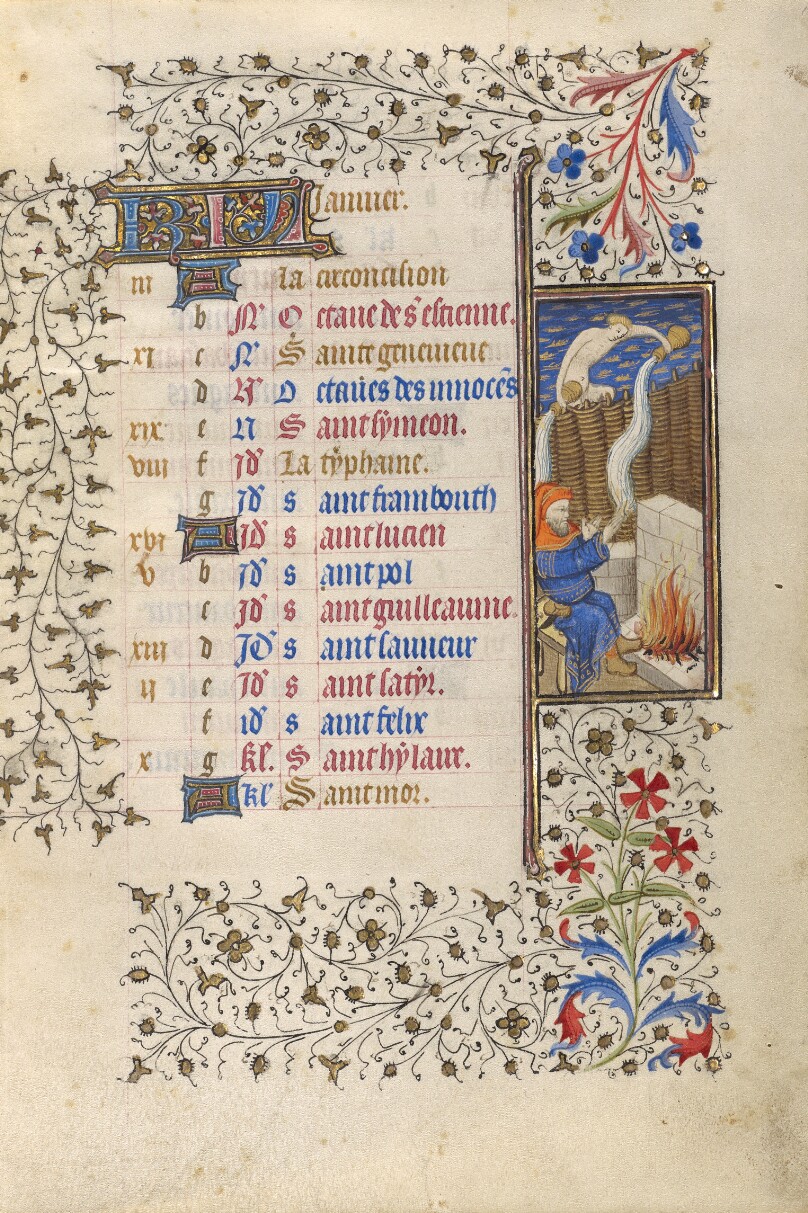 KL Januier.
iii A la circoncision
b N O ctaue de s estienne.
xi c N S ainte geneuieue
d N O ctaues des innocẽs
xix e N S aint symeon.
viii f Id La typhaine.
g Id s aint frambouth
xvi A Id s aint lucien
v b Id s aint pol
c Id s aint guilleaume.
xiii d Id s aint sauueur
ii e Id s aint satyr.
f id s aint felix
x g kl. S aint hylaire.
A kl S aint mor.